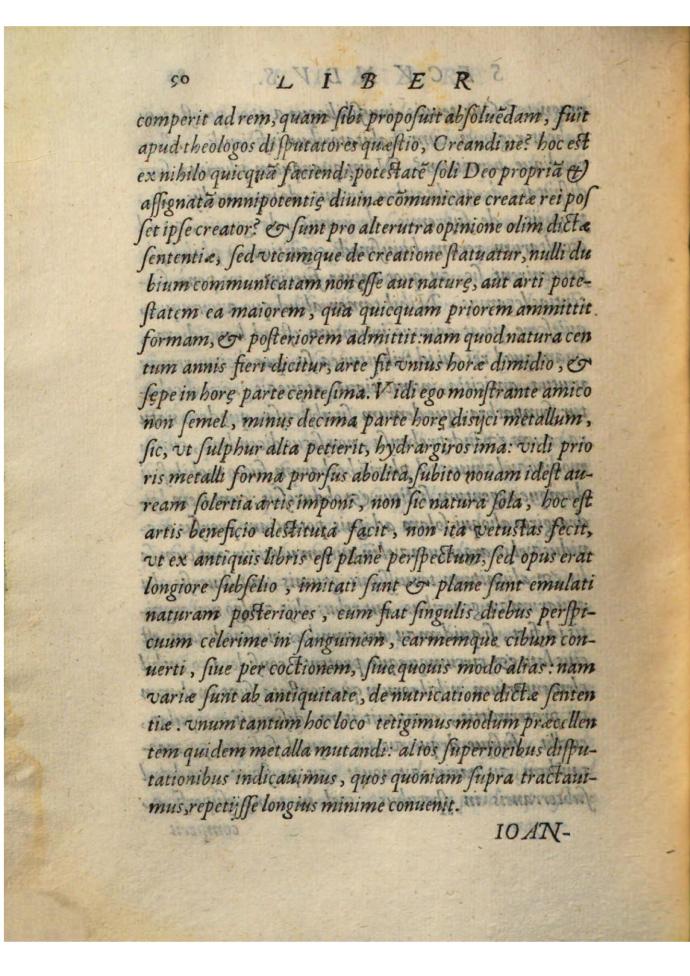 50 LIBER
comperit ad rem, quam sibi proposuit absoluēdam, fuit
apud theologos disputatores quæstio, Creandi ne? hoc est
ex nihilo quicquā faciendi, potestatē soli Deo propriā &
assignatā omnipotentię diuinæ cōmunicare creatæ rei pos
set ipse creator? & sunt pro alterutra opinione olim dictæ
sententiæ, sed vtcumque de creatione statuatur, nulli du
bium communicatam non esse aut naturę, aut arti pote-
statem ea maiorem, qua quicquam priorem ammittit
formam, & posteriorem admittit: nam quod natura cen
tum annis fieri dicitur, arte fit vnius horæ dimidio, &
sępe in horę parte centesima. Vidi ego monstrante amico
non semel, minus decima parte horę disijci metallum,
sic, vt sulphur alta petierit, hydrargiros ima: vidi prio
ris metalli forma prorsus abolita, subito nouam idest au-
ream solertia artis imponi, non sic natura sola, hoc est
artis beneficio destituta facit, non ita vetustas fecit,
vt ex antiquis libris est planè perspectum, sed opus erat
longiore subselio, imitati sunt & plane sunt emulati
naturam posteriores, cum fiat singulis diebus perspi-
cuum celerime in sanguinem, carmemque cibum con-
uerti, siue per coctionem, siue quouis modo alias: nam
variæ sunt ab antiquitate, de nutricatione dictæ senten
tiæ. vnum tantum hoc loco tetigimus modum præcellen
tem quidem metalla mutandi: alios superioribus dispu-
tationibus indicauimus, quos quoniam supra tractaui-
mus, repetijsse longius minime conuenit.
IOAN-